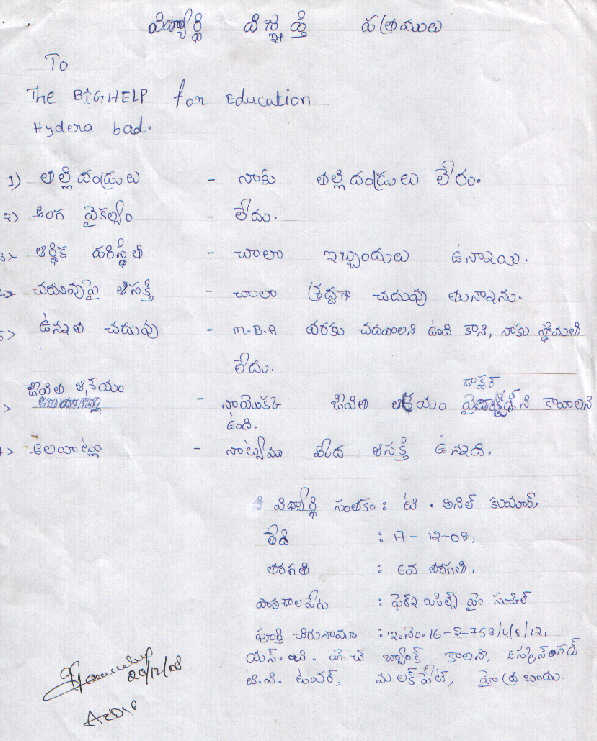 విద్యార్థి విజ్ఞప్తి పత్రములు
To
The BIGHELP for Education
Hydera bad.
1) తల్లి దండ్రులు - నాకు తల్లి దండ్రులు లేరు.
2) అంగ వైకల్యం - లేదు.
ఆర్థిక పరిస్థితి - చాలా ఇబ్బందులు ఉన్నాయి.
చదువుపై ఆసక్తి - చాలా శ్రద్ధగా చదువు తున్నాను.
5) ఉన్నత చదువు - M.B.A వరకు చదవాలని ఉంది కాని, నాకు స్థోమత
లేదు.
జీవిత ఆశయం - నాయొక్క జీవిత లక్ష్యం డాక్టర్ ని కావాలని
ఉంది.
ఆటలపాట్లు - నాట్యము మీద ఆసక్తి ఉన్నది.
విద్యార్థి సంతకం : టి. అనిల్ కుమార్
తేది : 17-12-08.
తరగతి : 6వ తరగతి.
పాఠశాల పేరు :
పూర్తి చిరునామా : ఇ.నెం. 16-2-
కాలని,
టి.వి. టవర్, మలక్ పేట్, హైదరాబాదు.
20/12/08